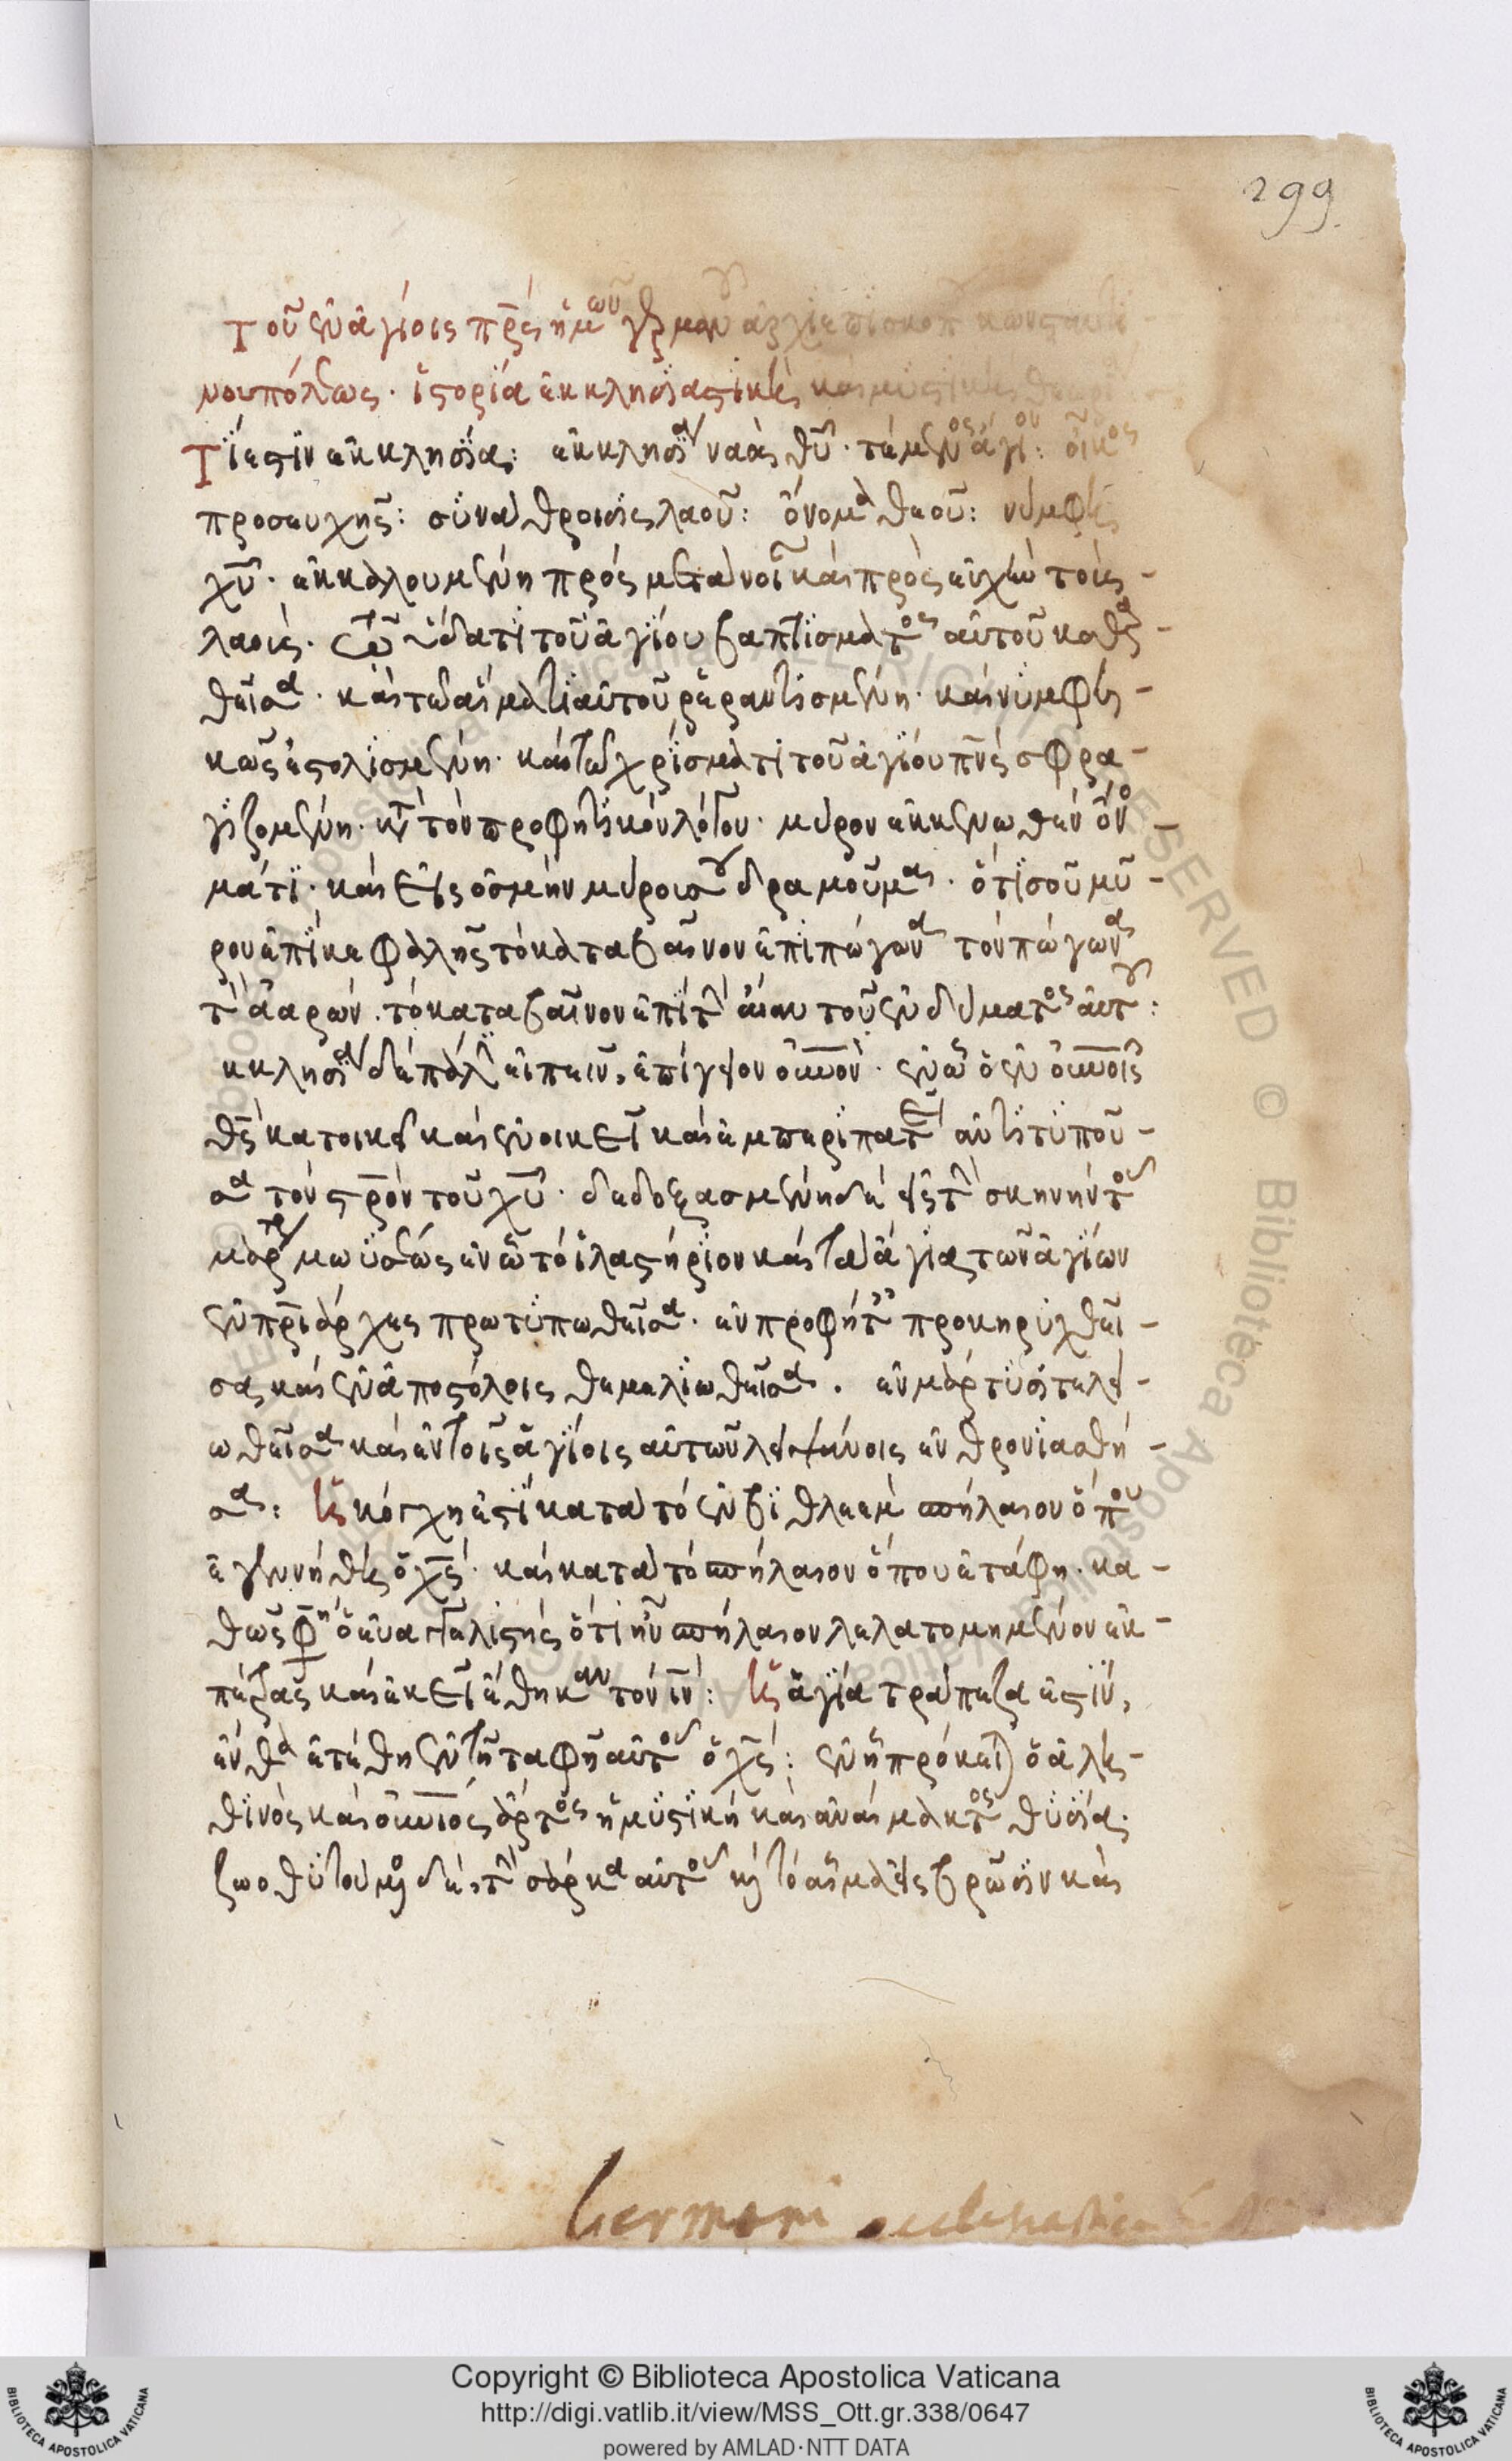 299.
Τοῦ ἐν ἁγίοις πρς ἡμῶν γερμανοῦ ἀρχιεπισκόπ κωνσταντι-
νουπόλεως. ἱστορία ἐκκλησϊαστικὴ καὶ μυστικὴ
Τί ἐστιν ἐκκλησία: ἐκκλησία ναὸς θυ. τέμενος ἅγιον: οἶκος
προσευχῆς: συνάθροισις λαοῦ: ὄνομα θεοῦ: νύμφη
χυ. ἐκκαλουμένη πρὸς μετάνοιαν καὶ πρὸς εὐχὴν τοὺς-
λαοὺς. τῶ ὕδατι τοῦ ἁγίου βαπτίσματος αὐτοῦ καθαρ-
θεῖσα. καὶ τῶ αἵματι αὐτοῦ ῥεραντισμένη. καὶ νυμφι-
κῶς ἐστολισμένη. καὶ τῶ χρίσματι τοῦ ἁγίου πνς σφρα-
γιζομένη. κτ τὸν προφητικὸν λόγον. μύρον ἐκκενωθὲν ὄνο-
μά τι. καὶ εἰς ὀσμὴν μύρου σου δραμοῦμαι. ὅτι σοῦ μύ-
ρου ἐπὶ κεφαλῆς τὸ καταβαῖνον ἐπὶ πώγωνα τὸν πώγωνα
τ ἀαρών. τὸ καταβαῖνον ἐπὶ τ ὤαν τοῦ ἐνδύματος αὐτοῦ:
κκλησία δὲ πάλ εἰπεῖν, ἐπίγειον ουνον. ἐν ᾧ ὁ ἐν ουνοις
θς κατοικεῖ καὶ ἐνοικεῖ καὶ ἐμπεριπατεῖ ἀντιτυποῦ-
σα τὸν στρον τοῦ χυ. δεδοξασμένη δὲ εἰς τ σκηνὴν τοῦ
μαρ μωϋσέως ἐν ᾧ τὸ ἱλαστήριον καὶ τὰ ἅγια τῶν ἁγίων
ἐν πριάρχαις προτυπωθεῖσα. ἐν προφήτ προκηρυχθεῖ-
σα καὶ ἐν ἀποστόλοις θεμελιωθεῖσα. ἐν μάρτυσι τελει-
ωθεῖσα καὶ ἐν τοῖς ἁγίοις αὐτῶν λειψάνοις ἐνθρονιασθή-
σα: ἡ κόγχη ἐστὶ κατὰ τὸ ἐν βιθλεὲμ σπήλαιον ὅπου
ἐγεννήθη ὁ χς. καὶ κατὰ τὸ σπήλαιον ὅπου ἐτάφη. κα-
θώς φη ὁ εὐαγγελιστὴς ὅτι ἦν σπήλαιον λελατομημένον ἐκ-
πέτρας καὶ ἐκεῖ ἔθηκαν τὸν ιν: ἡ ἁγία τράπεζα ἐστὶν,
ἔνθα ἐτέθη ἐν τῆ ταφῆ αὐτοῦ ὁ χς: ἐν ἧ πρόκειται ὁ ἀλη-
θινὸς καὶ ουνιος ἄρτος ἡ μυστικὴ καὶ ἀναίμακτος θυσία:
ζωοθυτούμενος τ σάρκα αὐτοῦ κ τὸ αἷμα εἰς βρῶσιν καὶ
Germani
Copyright © Biblioteca Apostolica Vaticana
http://digi.vatlib.it/view/MSS_Ott.gr.338/0647
powered by AMLAD·NTT DATA